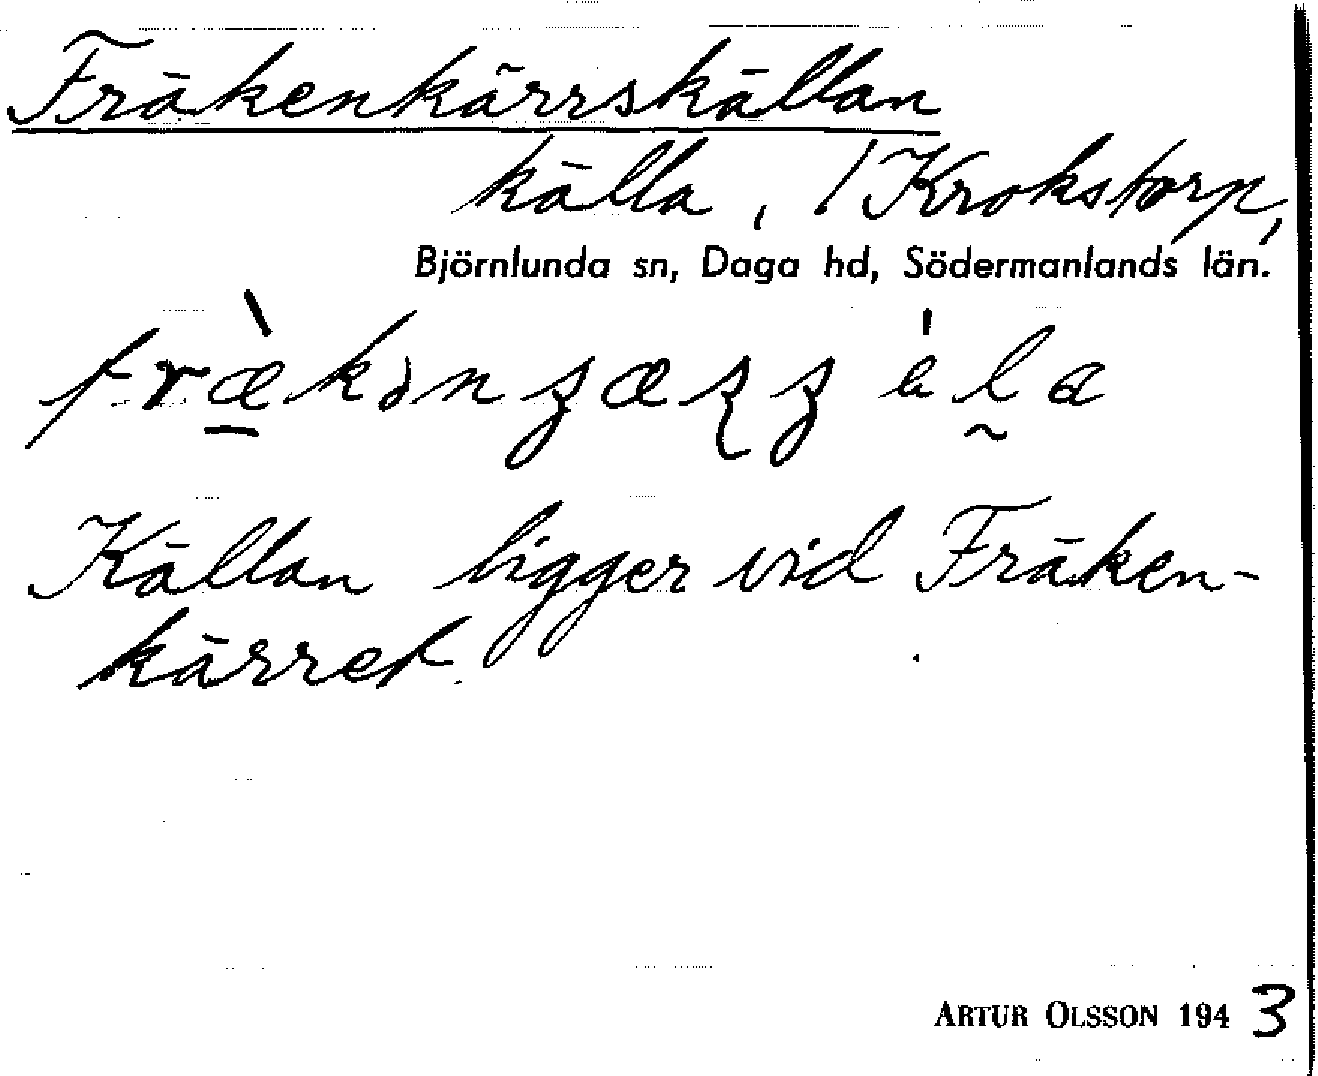 Fräkenkärrskällan
källa, / Krokstorp,
Björnlunda sn, Daga hd, Södermanlands län.
Källan ligger vid Fräken-
kärret.
ARTUR OLSSON 1943